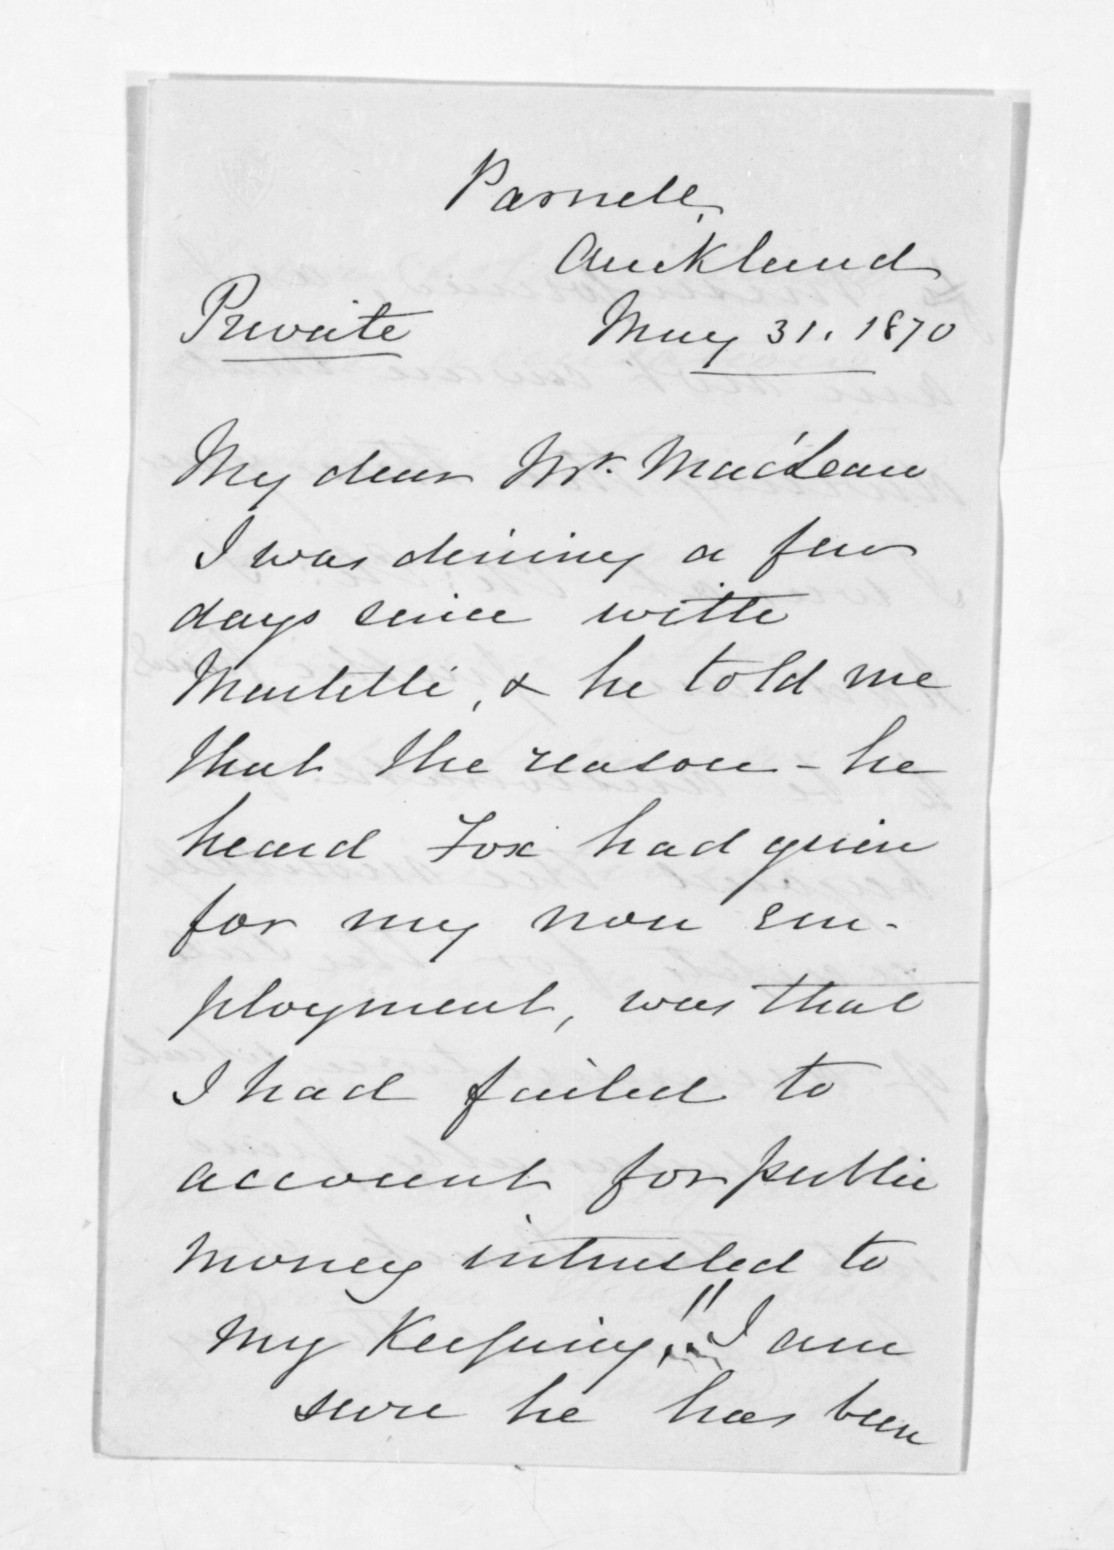 Parnell.
Auckland
Private May 31. 1870
My dear Mr. MacLean
I was dining a few
days since with
Martelli, & he told me
that the reason - he
heard Fox had given
for my non em-
ployment, was that
I had failed to
account for public
money intrusted to
my keeping!! I am
sure he has been